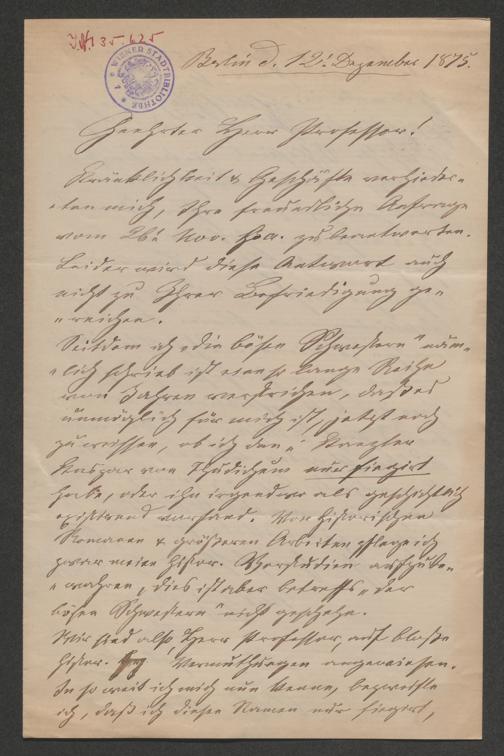 I.N. 35.625
WIENER STADTBIBLIOTHEK
Berlin d. 12t Dezember 1875.
Geehrter Herr Professor!
Kränklichkeit & Geschäfte verhinder=
=ten mich, Ihre freundliche Anfrage
vom 26t Nov. zu beantworten.
Leider wird diese Antwort auch
nicht zu Ihrer Befriedigung ge=
=reichen.
Seitdem ich „die bösen Schwestern" näm=
=lich schrieb ist eine so lange Reihe
von Jahren verstrichen, daß es
unmöglich für mich ist, jetzt noch
zu wissen, ob ich den Kanzler
Kaspar von nur fingirt
habe, oder ihn irgendwo als geschichtlich
existirend vorfand. Von historischen
Romanen & größeren Arbeiten pflege ich
zwar meine histor. Vorstudien aufzube=
=wahren, dies ist aber betreffs „der
bösen Schwestern" nicht geschehn.
Wir sind also, Herr Professor, auf bloße
histor. Vermuthungen angewiesen.
In so weit ich mich nun kenne, bezweifle
ich, daß ich diesen Namen nur fingirt,